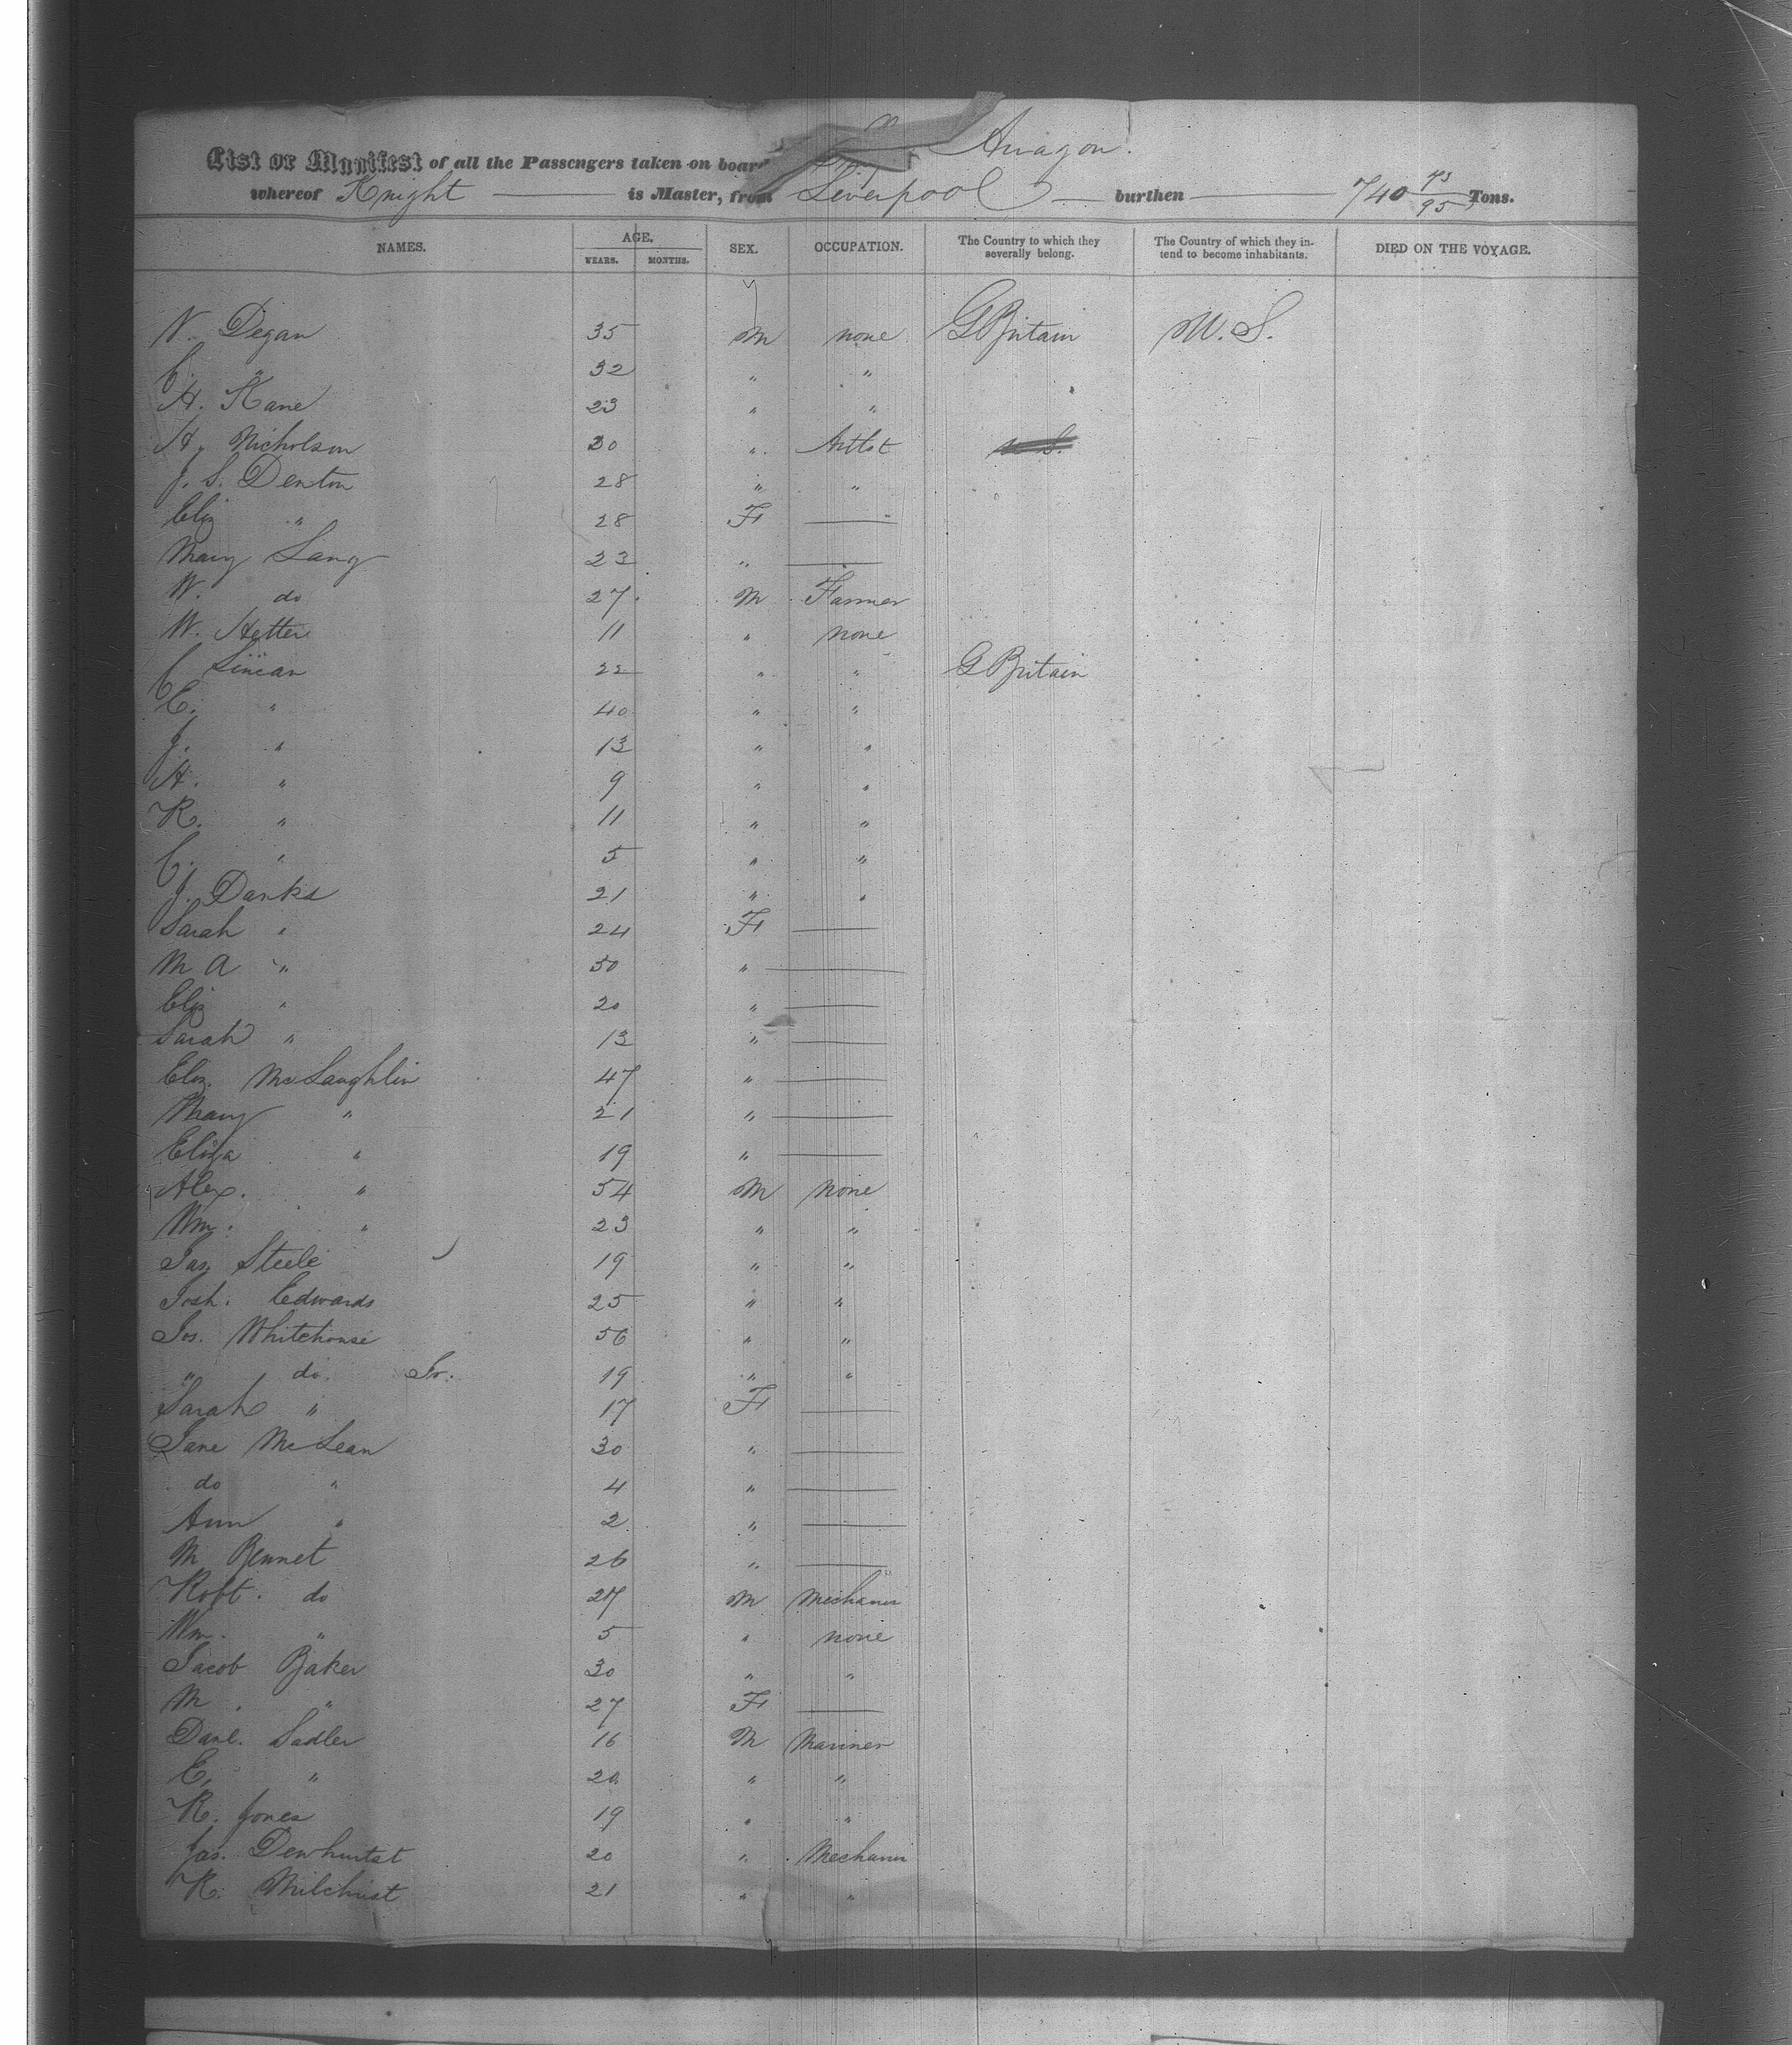 List or Manifest of all the Passengers taken on board Arragon.
whereof Knight is Master, from Liverpool burthen 740 93/95 Tons.
NAMES. AGE. YEARS. MONTHS. SEX. OCCUPATION. The Country to which they severally belong. The Country of which they intend to become inhabitants. DIED ON THE VOYAGE.
N. Degan 35 M none G Britain U. S.
C. " 32 " "
H. Kane 23 " "
H. Nicholson 30 " Artist U S.
J. S. Denton 28 " "
Eliz " 28 F
Mary Lang 23 "
W. do 27 M Farmer
W. Hetter 11 " none
C 22 " " G Britain
E. " 40 " "
J. " 13 " "
H. " 9 " "
R. " 11 " "
C. " 5 " "
J. Danks 21 " "
Sarah " 24 F
M A " 50 "
Eliz " 20 "
Sarah " 13 "
Eliz. McLaughlin 47 "
Mary " 21 "
Eliza " 19 "
Alex. " 54 M none
Wm. " 23 " "
Jas Steele 19 " "
Josh. Edwards 25 " "
Jos. Whitehouse 56 " "
" do. Jr. 19 " "
Sarah " 17 F
Jane McLean 30 "
do " 4 "
Ann " 2 "
M Bennet 26 "
Robt. do 27 M Mechanic
Wm. " 5 " none
Jacob Baker 30 " "
M. " 27 F
Danl. Sadler 16 M Mariner
E. " 20 " "
R. Jones 19 " "
Jas. Dewhurst 20 " Mechanic
R. Milchrist 21 " "